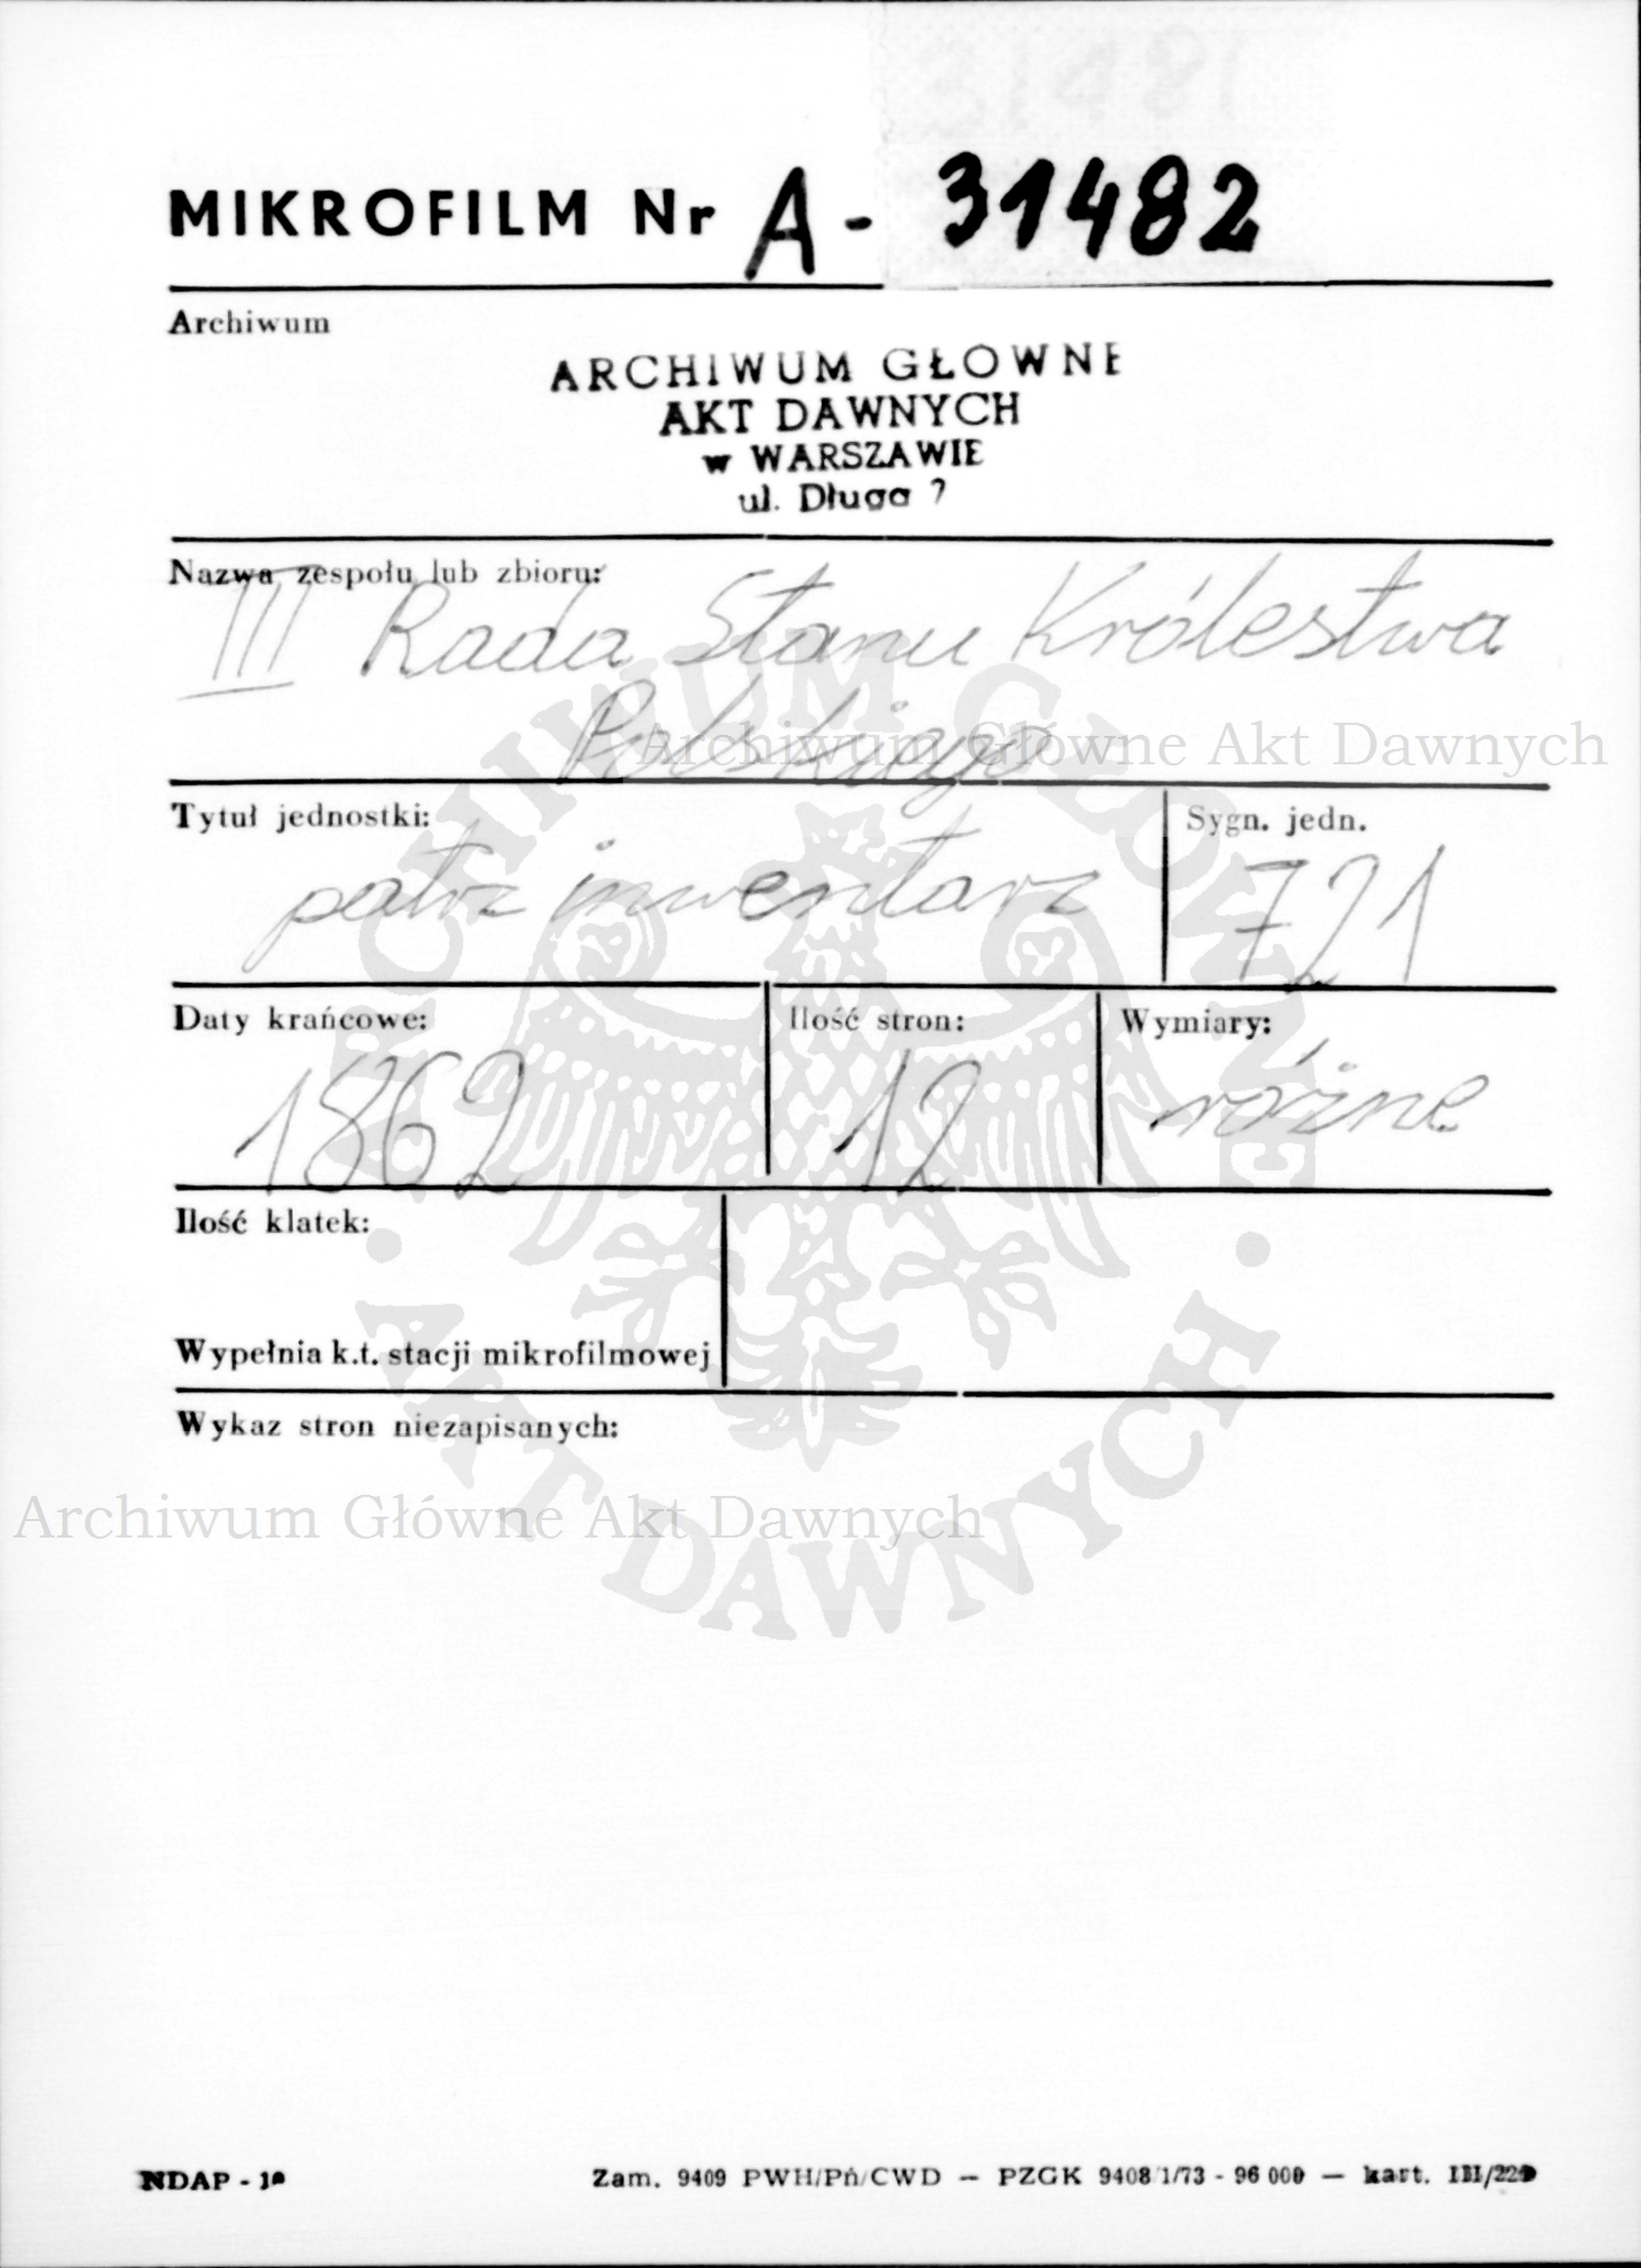 MIKROFILM Nr A - 31482
Archiwum
ARCHIWUM GŁOWNE
AKT DAWNYCH
w WARSZAWIE
ul. Długa 7
Nazwa zespołu lub zbioru:
III Rada Stanu Królestwa
Polskiego
Archiwum Główne Akt Dawnych
Tytuł jednostki:
Sygn. jedn.
patrz inwentarz
721
Daty krańcowe:
Ilość stron:
Wymiary:
1862
12
różne
Ilość klatek:
Wypełnia k.t. stacji mikrofilmowej
Wykaz stron niezapisanych:
Archiwum Główne Akt Dawnych
ARCHIWUM GŁÓWNE
· AKT DAWNYCH ·
NDAP -
Zam. 9409 PWH/Pń/CWD — PZGK 9408/1/73 - 96 000 — kart. III/